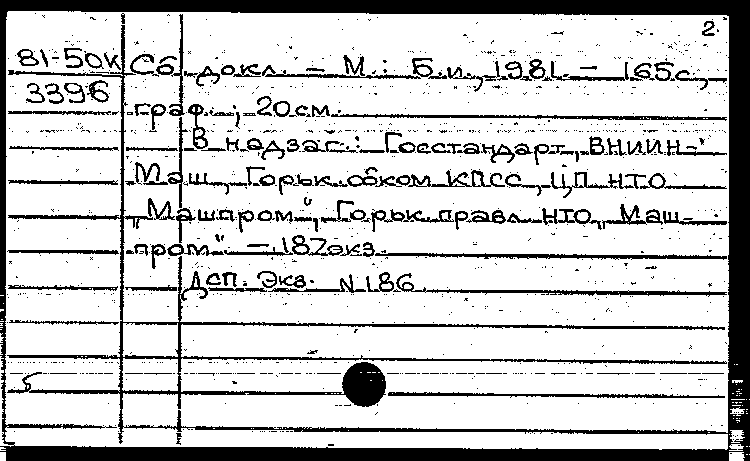 2
81-50к Сб. докл. – М.: Б.и., 1981. – 165с.,
3396
граф.; 20см.
В надзаг.: Госстандарт, ВНИИН-
Маш, Горьк.обком КПСС, ЦП НТО
„Машпром“, Горьк.правл. НТО „Маш-
пром“. – 187экз.
ДСП. Экз. N 186.